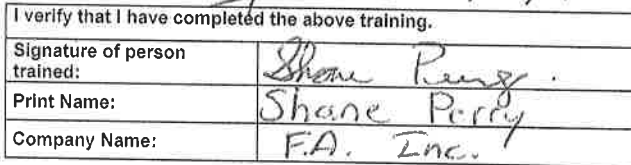 I verify that I have completed the above training.
Signature of person trained: Shane Perry.
Print Name: Shane Perry
Company Name: F.A. Inc.